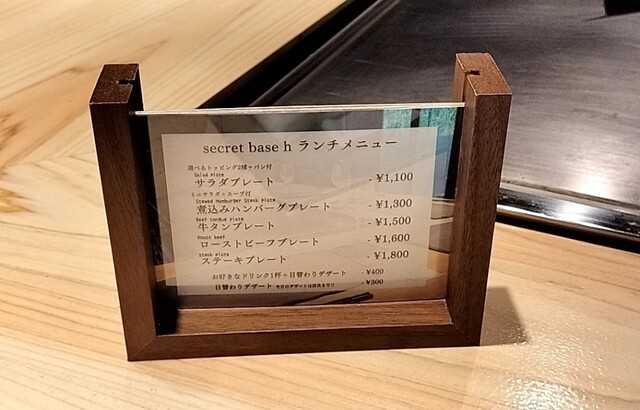 secret base h ランチメニュー
選べるトッピング2種+パン付
Salad plate
サラダプレート - ¥1,100
ミニサラダ+スープ付
Stewed Hamburger Steak plate
煮込みハンバーグプレート - ¥1,300
Beef tongue plate
牛タンプレート - ¥1,500
Roast beef
ローストビーフプレート - ¥1,600
Steak plate
ステーキプレート - ¥1,800
お好きなドリンク1杯+日替わりデザート - ¥400
日替わりデザート - ¥300